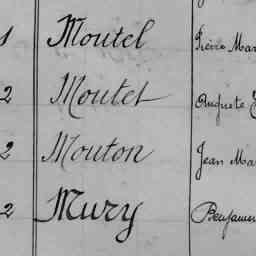 1 Moutel Pierre Mar
2 Moutet Auguste
2 Mouton Jean Ma
2 Mury Benjamin